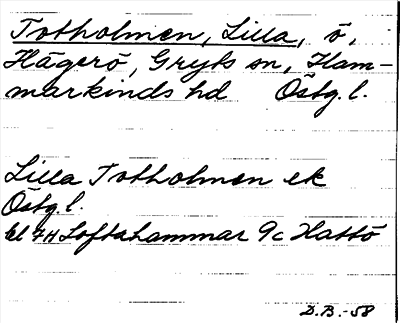 Totholmen, Lilla, ö,
Hägerö, Gryts sn, Ham-
markinds hd Östg. l.
Lilla Totholmen ek
Östg. l.
bl 7H Loftahammar 9c Hattö
D.B.-58